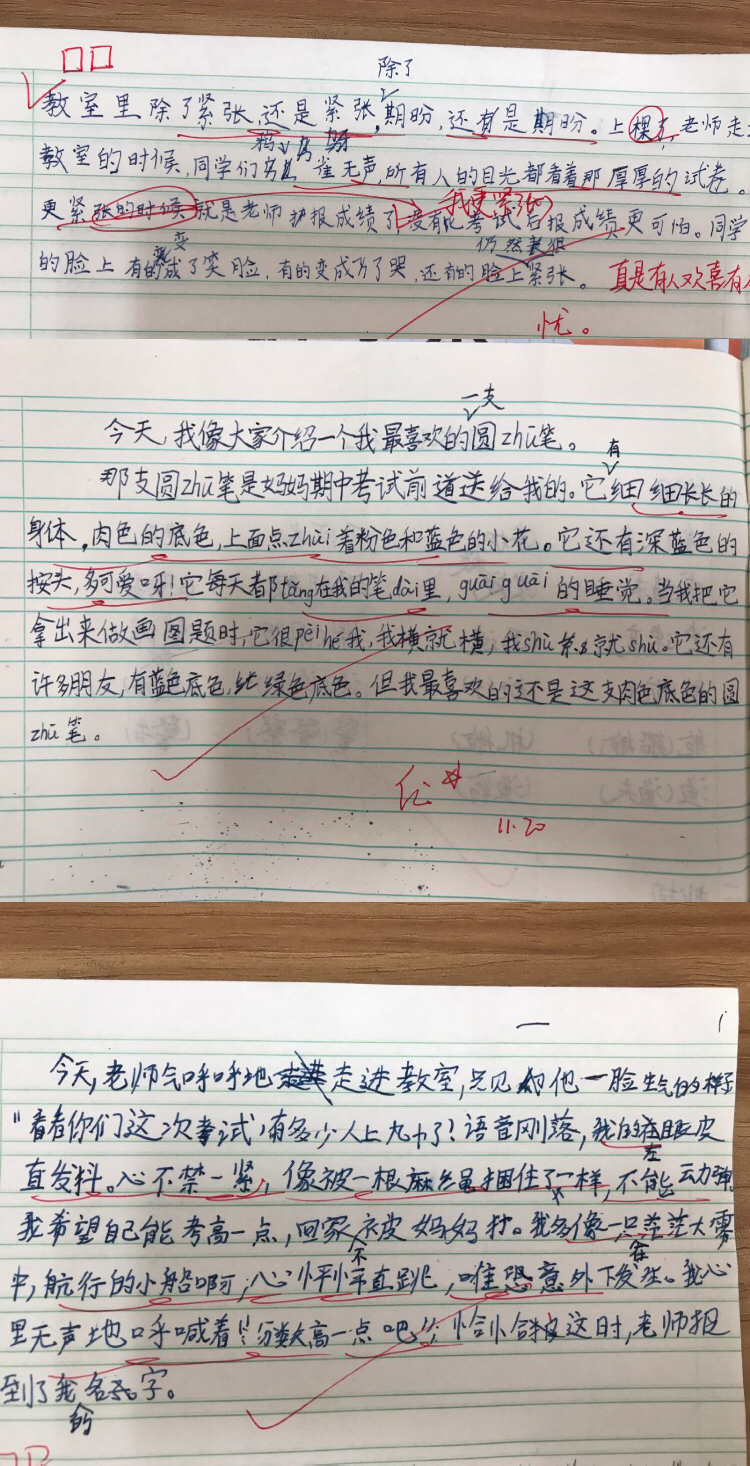 除了
教室里除了紧张,还是紧张,期盼,还有是期盼。上课了,老师走
鸦
教室的时候,同学们 雀无声,所有人的目光都看着那厚厚的试卷。
我更紧张的
更紧张的时候就是老师 报成绩了,没有比考试后报成绩更可怕。同学
变 仍然表很
的脸上有的 成了笑脸,有的变成 了哭,还有的脸上紧张。真是有人欢喜有人
忧。
一支
今天,我像大家介绍一个我最喜欢的圆zhū笔。
有
那支圆zhū笔是妈妈期中考试前道送给我的。它细细长长的
身体,肉色的底色,上面点zhuì着粉色和蓝色的小花。它还有深蓝色的
按头,多可爱呀!它每天都tǎng在我的笔dài里,guāi guāi的睡觉。当我把它
拿出来做画图题时,它很pèi hé我,我横就横,我shù 就shù。它还有
许多朋友,有蓝色底色, 绿色底色。但我最喜欢的还是这支肉色底色的圆
zhū笔。
优
11.20
今天,老师气呼呼地走进教室,只见他一脸生气的样子
"看看你们这次考试,有多少人上九十了?语音刚落,我的 眼皮
左
直发抖。心不禁一紧,像被一根麻绳捆住了一样,不能动弹
我希望自己能考高一点,回家 被妈妈打。我多像一只茫茫大雾
不 在
中,航行的小船啊,心怦怦直跳,唯恐意外下发生。我心
里无声地呼喊着!"分数高一点吧!" 恰恰 这时,老师报
到了我名字。
的